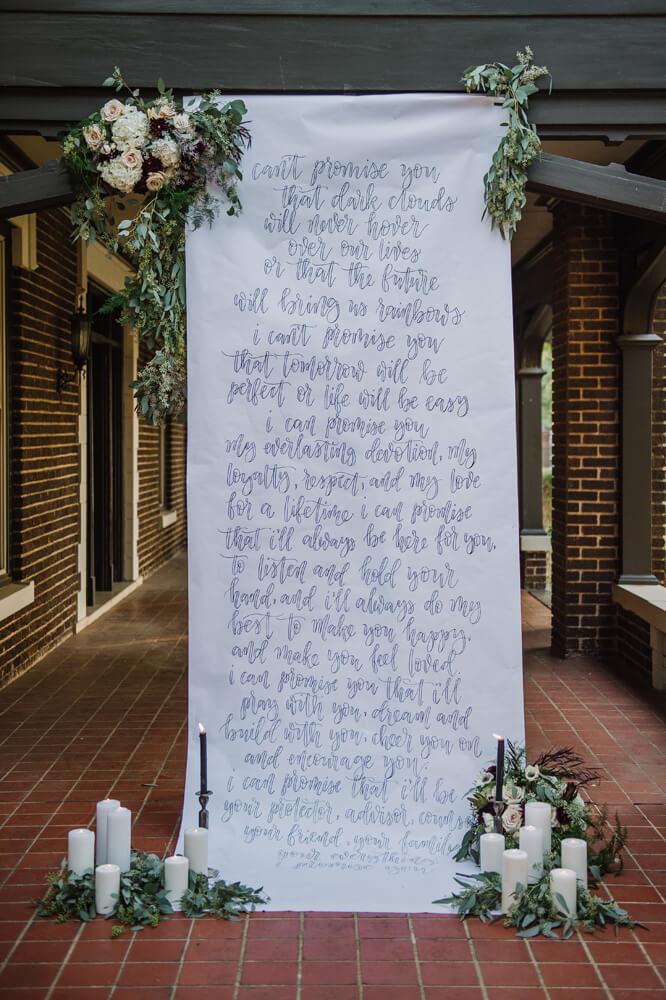 can't promise you
that dark clouds
will never hover
over our lives
or that the future
will bring us rainbows
i can't promise you
that tomorrow will be
perfect or life will be easy
i can promise you
my everlasting devotion, my
loyalty, respect, and my love
for a lifetime i can promise
that i'll always be here for you,
to listen and hold your
hand, and i'll always do my
best to make you happy,
and make you feel loved.
i can promise you that i'll
pray with you, dream and
build with you, cheer you on
and encourage you.
i can promise that i'll be
your protector, advisor, couns
your friend, your family
your everything